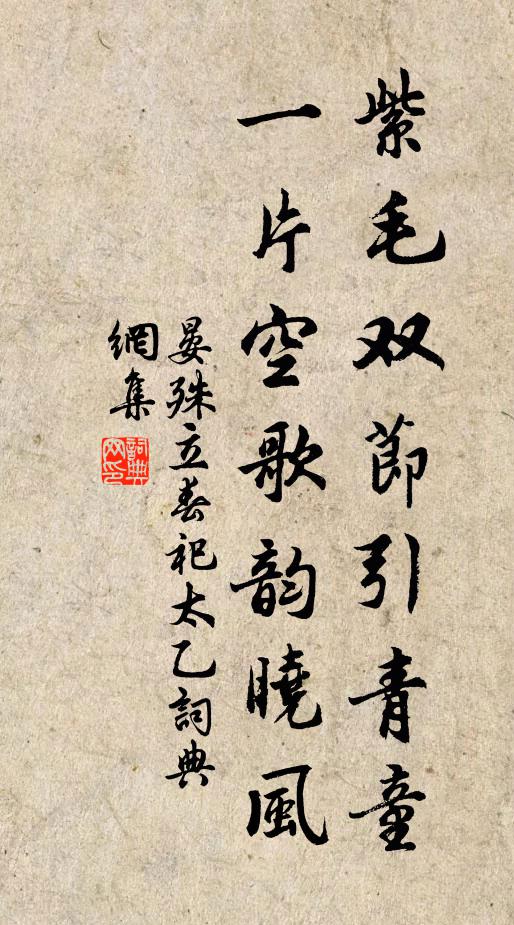 紫毛双節引青童
一片空歌韵曉風
晏殊立春祀太乙詞典
網集
詞典网印